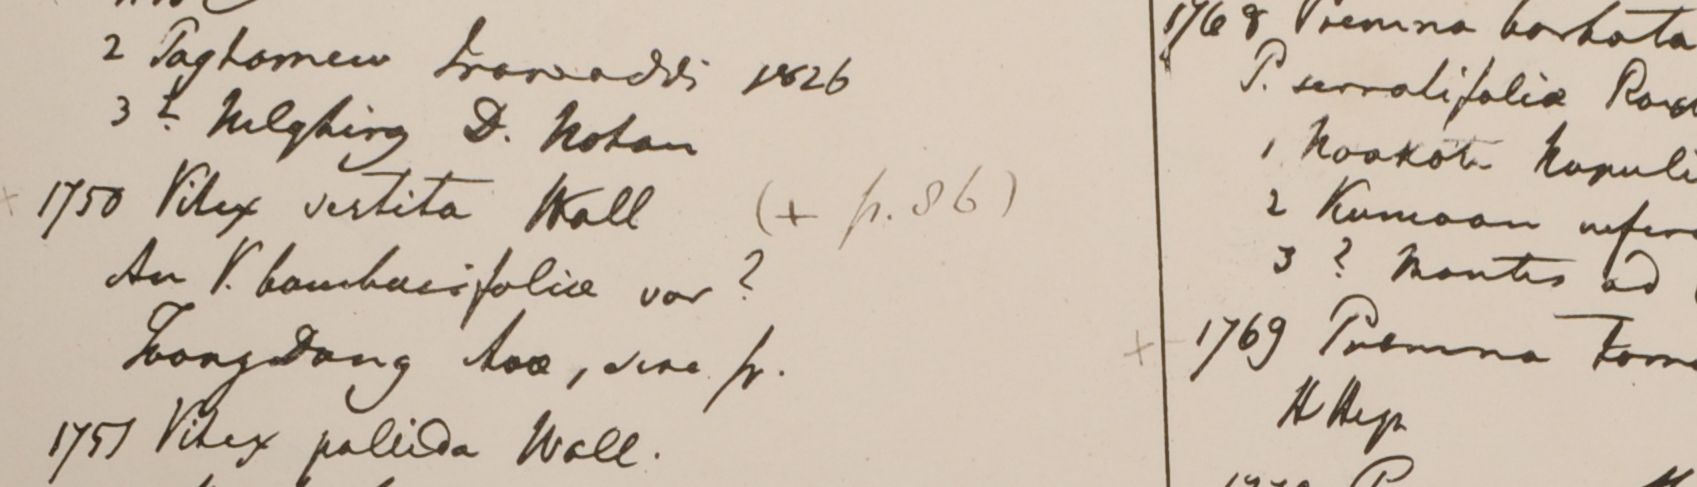 2 Taghamew Irawaddi 1826
3 ? Nelghirry D. Nohan
1750 Vitex vestita Wall (+ p. 86)
An V. bambusifolia var ?
Toong Dong Avae, sine fr.
1751 Vitex pallida Wall.
1768 Premna barbata
P. serratifolia Rox
1 Noakote Napuli
2 Kumaon infer
3 ? Montes ad
1769 Premna Tom
H Hep